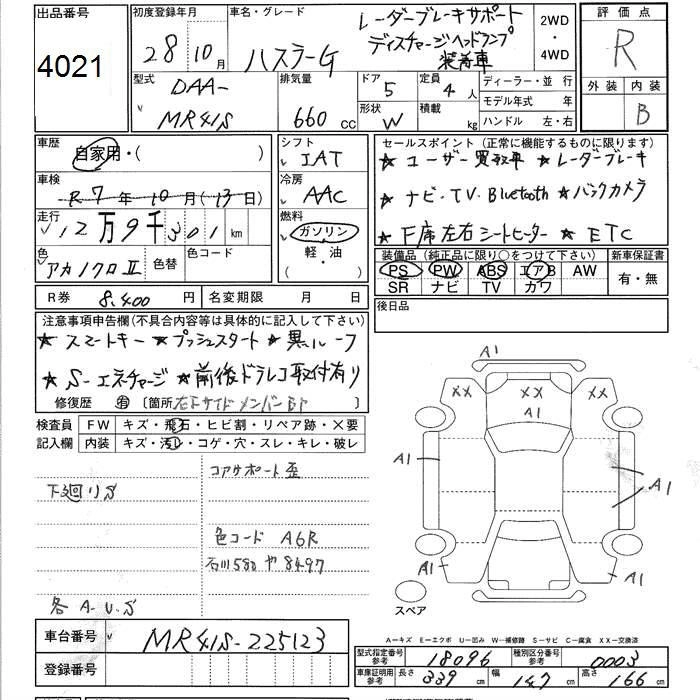 出品番号
4021
初度登録年月
28年10月
車名・グレード
ハスラーG
レーダーブレーキサポート
ディスチャージヘッドランプ
装着車
2WD
・
4WD
評価点
R
外装 内装
B
型式
DAA-
MR41S
排気量
660 cc
ドア
5
定員
4人
形状
W
積載
kg
ディーラー・並行
モデル年式 年
ハンドル 左・右
車歴
自家用・( )
車検
R7年10月(13日)
走行
12万9千301km
色
アカ/クロⅡ
色替
色コード
シフト
IAT
冷房
AAC
燃料
ガソリン
軽・油
( )
セールスポイント(正常に機能するものに限ります)
★ユーザー買取車 ★レーダーブレーキ
★ナビ・TV・Bluetooth ★バックカメラ
★F席左右シートヒーター ★ETC
装備品(純正品に限り○をつけて下さい) 新車保証書
PS PW ABS エアB AW
SR ナビ TV カワ
有・無
R券 8,400円
名変期限 月 日
後日品
注意事項申告欄(不具合内容等は具体的に記入して下さい)
★スマートキー ★プッシュスタート ★黒ルーフ
★S-エネチャージ ★前後ドラレコ取付有り
修復歴 有 〔箇所 右Fサイドメンバー 〕
検査員 FW キズ・飛石・ヒビ割・リペア跡・×要
記入欄 内装 キズ・汚レ・コゲ・穴・スレ・キレ・破レ
コアサポート歪
下廻りS
色コード A6R
石川580 や 8497
各A.U.S
A1
XX XX XX
A1
A1 A1
A1
A1 A1
スペア
A-キズ E-エクボ U-凹み W-補修跡 S-サビ C-腐食 XX-交換済
車台番号 MR41S-225123
登録番号
型式指定番号 参考 18096 種別区分番号 参考 0003
車庫証明用 参考 長さ 339cm 幅 147cm 高さ 166cm